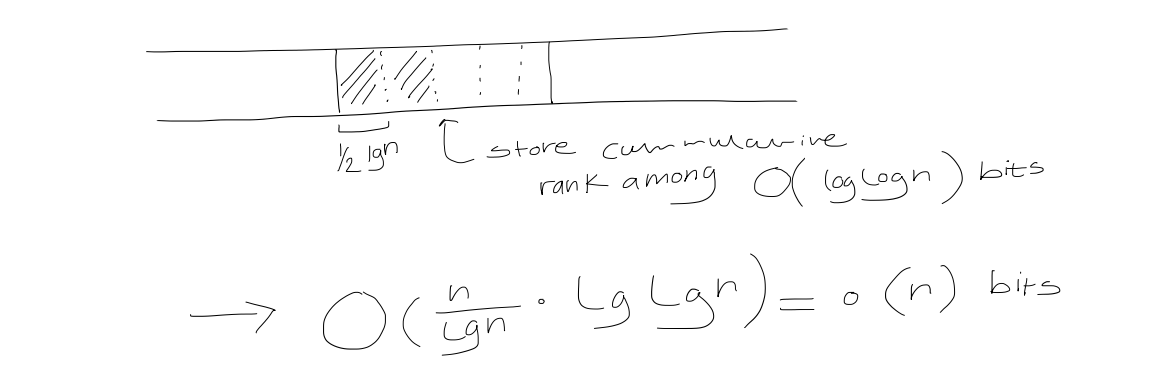 1/2 lgn store cummulative
rank among O(loglogn) bits
→ O(n/lgn · Lg Lgn) = o(n) bits